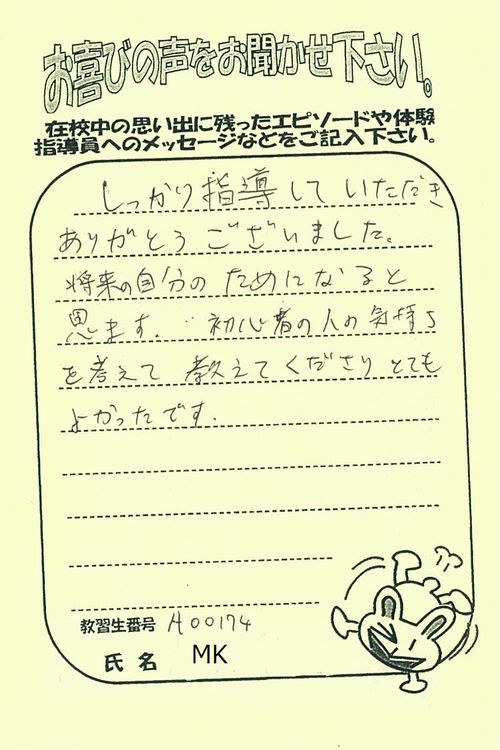 お喜びの声をお聞かせ下さい。
在校中の思い出に残ったエピソードや体験
指導員へのメッセージなどをご記入下さい。
しっかり指導していただき
ありがとうございました。
将来の自分のためになると
思います。初心者の人の気持ち
を考えて教えてくださりとても
よかったです.
教習生番号 A00174
氏名 MK